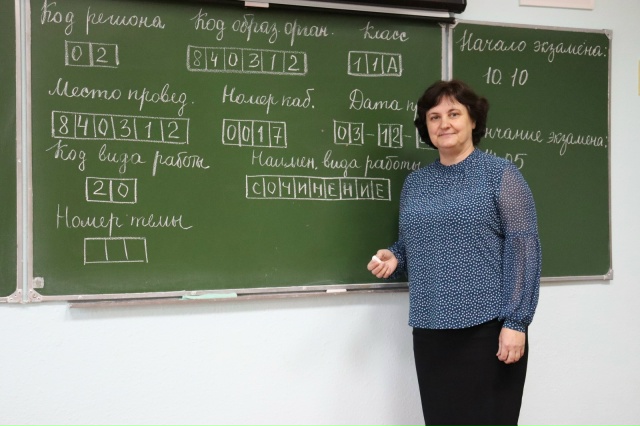 Код региона Код образ. орган. Класс
02 840312 11А
Место провед. Номер каб. Дата
840312 0017 03-12-
Код вида работы Наимен. вида работы
20 СОЧИНЕНИЕ
Номер темы
Начало экзамена:
10.10
экзамена:
05